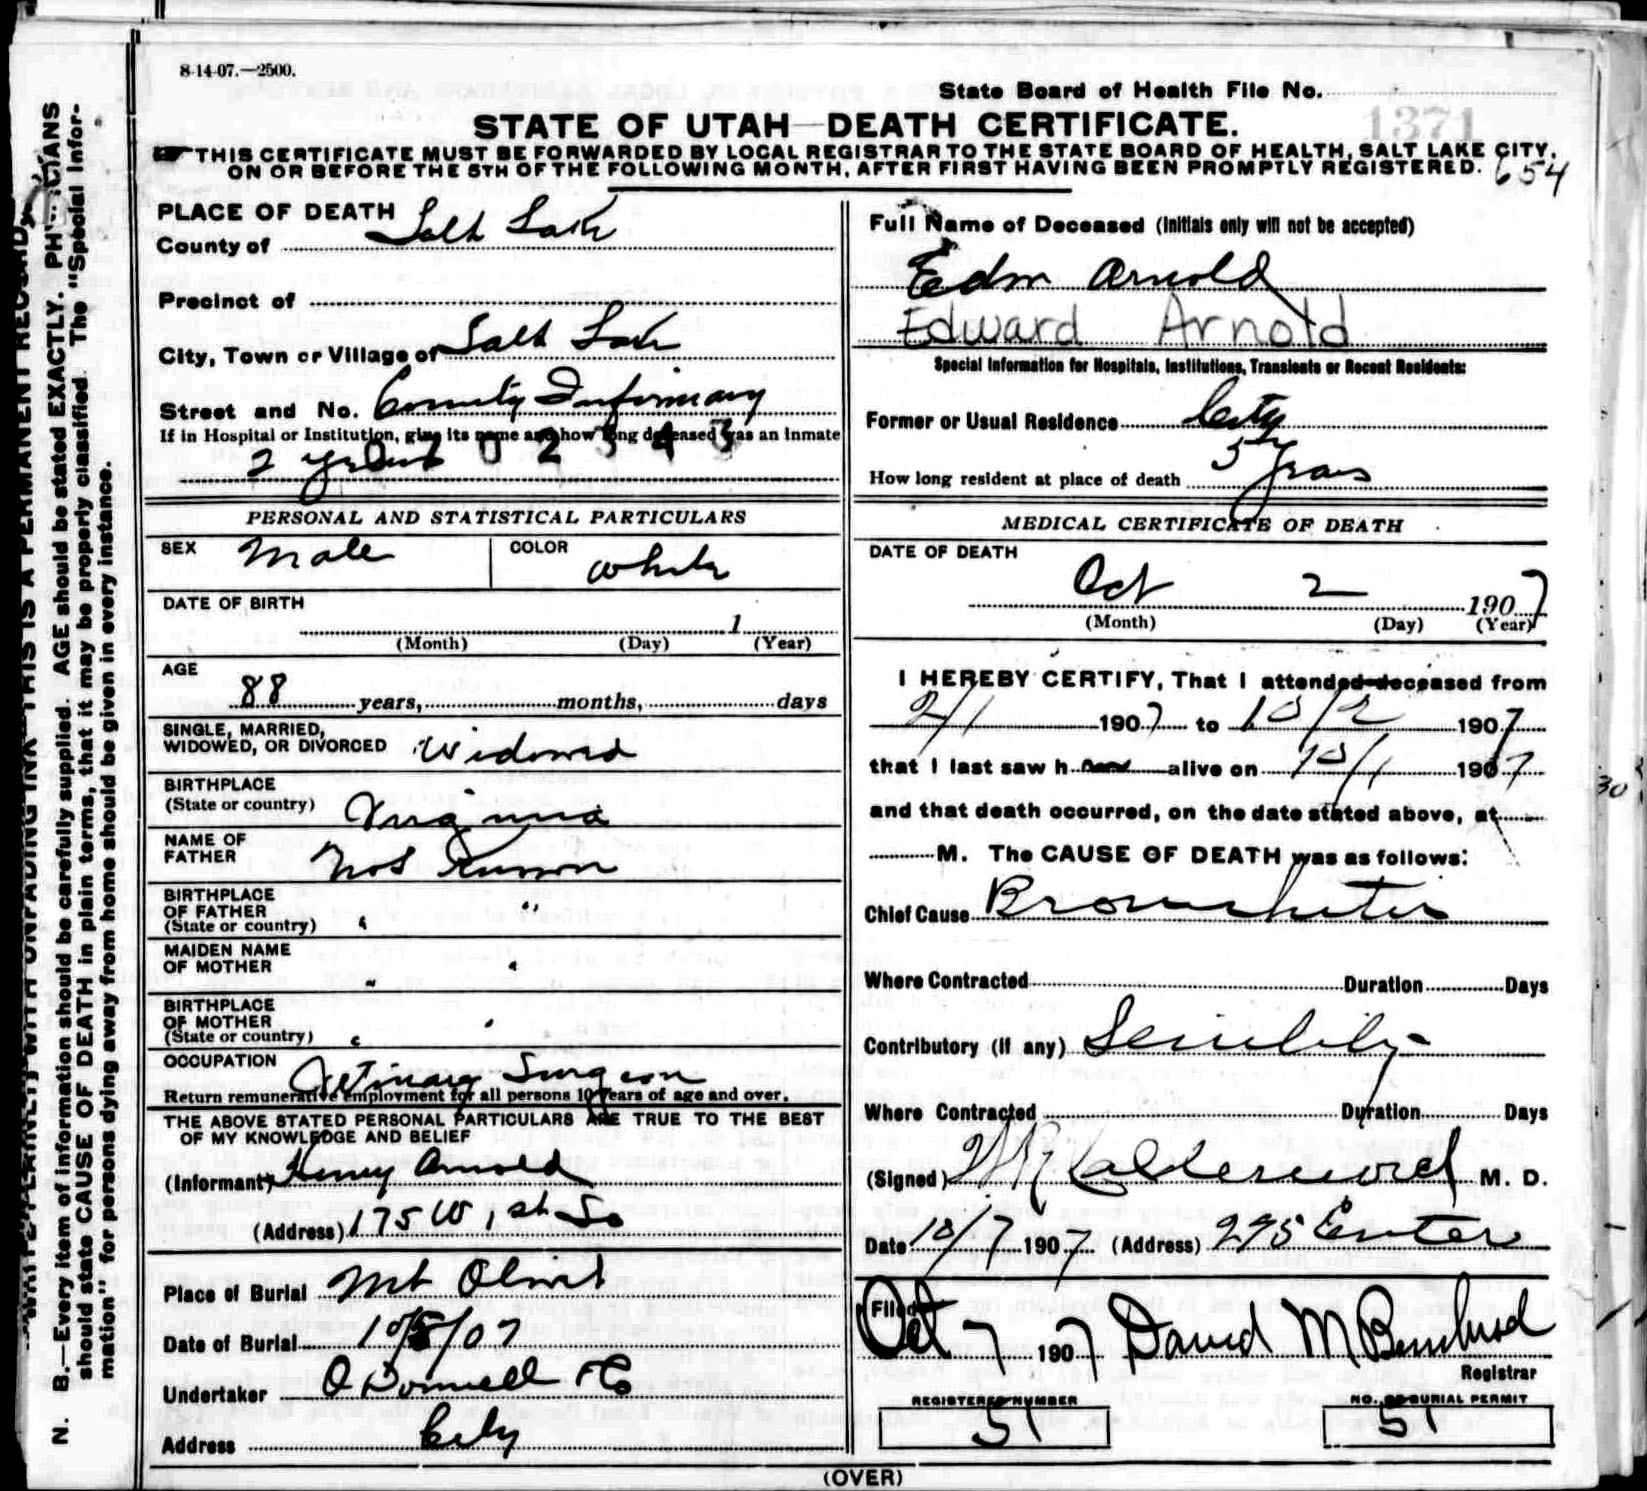 8-14-07.—2500.
State Board of Health File No.
1371
STATE OF UTAH—DEATH CERTIFICATE.
THIS CERTIFICATE MUST BE FORWARDED BY LOCAL REGISTRAR TO THE STATE BOARD OF HEALTH, SALT LAKE CITY,
ON OR BEFORE THE 5TH OF THE FOLLOWING MONTH, AFTER FIRST HAVING BEEN PROMPTLY REGISTERED.
654
PLACE OF DEATH
County of Salt Lake
Precinct of
City, Town or Village of Salt Lake
Street and No. County Infirmary
If in Hospital or Institution, give its name and how long deceased was an Inmate
2 years
0 2 3 4 3
PERSONAL AND STATISTICAL PARTICULARS
SEX Male COLOR White
DATE OF BIRTH
1
(Month) (Day) (Year)
AGE
88 years, months, days
SINGLE, MARRIED,
WIDOWED, OR DIVORCED Widowed
BIRTHPLACE
(State or country) Virginia
NAME OF
FATHER Not Known
BIRTHPLACE
OF FATHER "
(State or country)
MAIDEN NAME
OF MOTHER "
BIRTHPLACE
OF MOTHER
(State or country)
OCCUPATION Vetinary Surgeon
Return remunerative employment for all persons 10 years of age and over.
THE ABOVE STATED PERSONAL PARTICULARS ARE TRUE TO THE BEST
OF MY KNOWLEDGE AND BELIEF
(Informant) Henry Arnold
(Address) 175 W 1st So
Place of Burial Mt Olivet
Date of Burial 10/8/07
Undertaker O Donnell & Co
Address City
Full Name of Deceased (Initials only will not be accepted)
Edw Arnold
Edward Arnold
Special Information for Hospitals, Institutions, Transients or Recent Residents:
Former or Usual Residence City
How long resident at place of death 5 years
MEDICAL CERTIFICATE OF DEATH
DATE OF DEATH
Oct 2 1907
(Month) (Day) (Year)
I HEREBY CERTIFY, That I attended deceased from
2/1 1907 to 10/2 1907
that I last saw h alive on 10/1 1907
and that death occurred, on the date stated above, at
M. The CAUSE OF DEATH was as follows:
Chief Cause Bronchitis
Where Contracted Duration Days
Contributory (if any) Senility
Where Contracted Duration Days
(Signed) Calderwood M. D.
Date 10/7 1907 (Address) 275 Center
Filed
Oct 7 1907 David M
Registrar
REGISTERED NUMBER
51
NO. OF BURIAL PERMIT
51
(OVER)
WRITE PLAINLY, WITH UNFADING INK—THIS IS A PERMANENT RECORD.
N. B.—Every item of information should be carefully supplied. AGE should be stated EXACTLY. PHYSICIANS
should state CAUSE OF DEATH in plain terms, that it may be properly classified. The "Special Infor-
mation" for persons dying away from home should be given in every instance.
30